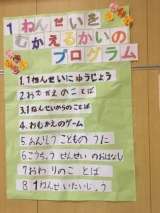 1ねんせいを
むかえるかいの
プログラム
1.1ねんせいにゅうじょう
2.おむかえのことば
3.1ねんせいからのことば
4.おむかえのゲーム
5おんがく こどものうた
6こうちょうせんせいのおはなし
7おわりのことば
8 1ねんせいたいじょう